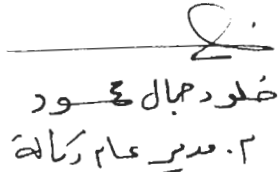 خلود جمال محمود
م. مدير عام وكالة